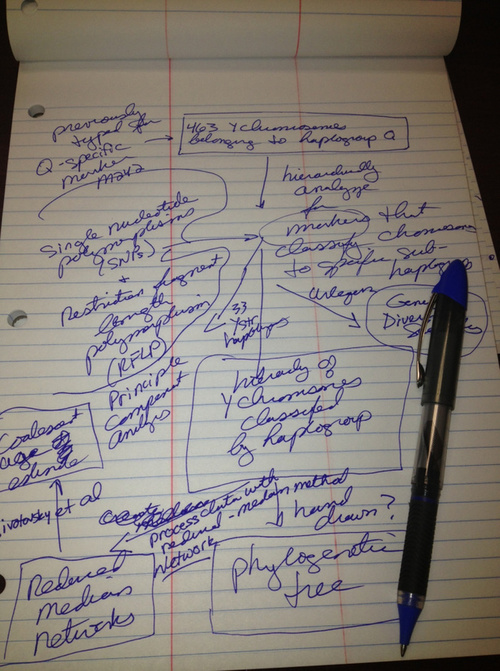 previously
typed for
Q-specific
marker
M242
463 Ychromosomes
belonging to haplogroup Q
hierarchically
analyze
for
markers that
classify chromosomes
to specific sub-
haplogroups
Single nucleotide
polymorphisms
(SNPs)
+
Restriction fragment
length
polymorphism
(RFLP)
33
Ystr
haplogroups
Arlequin
Genetic
Diversity
Principle
Component
analysis
hierachy of
Ychromosomes
classified
by haplogroup
Coalescent
age of
estimate
ivotovsky et al
process data with
reduced-median method
Network
hand
drawn?
Reduced
Median
Networks
phylogenetic
tree